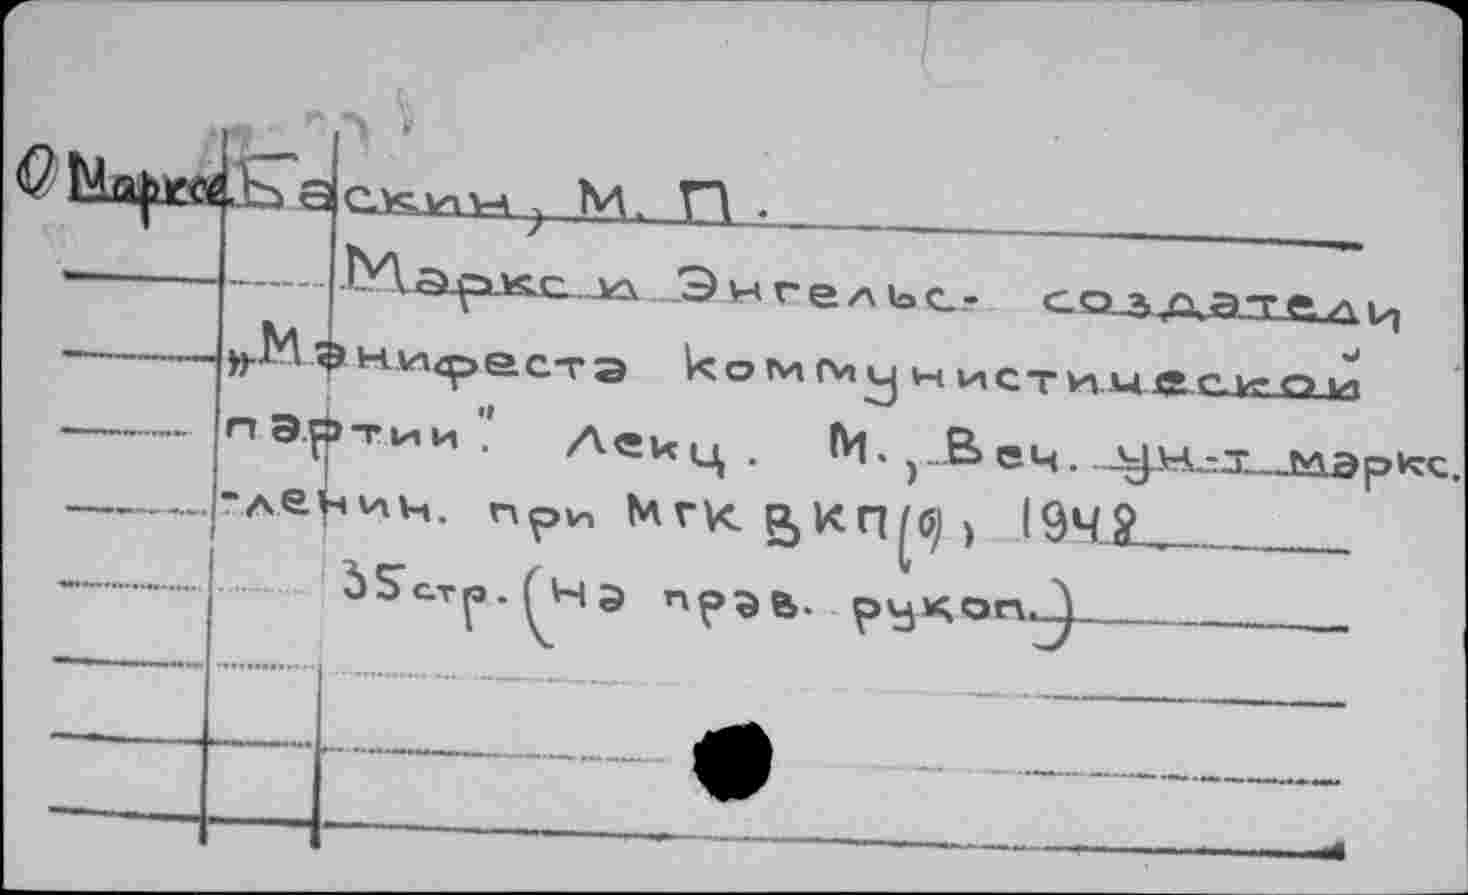 О Марксе Баскин, М. П.
Маркс и Энгельс - создатели
„Манифеста Коммунистической
партии". Лекц. М., Веч. ун-т маркс.
-ленин. при МГК ВКП(б), 1948
35 стр. (На прав. рукоп.)